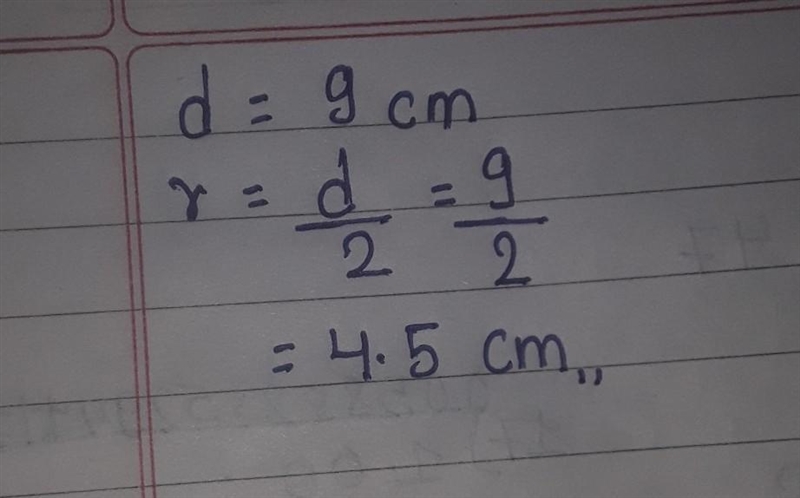 d = 9 cm
r = d/2 = 9/2
= 4.5 cm,,